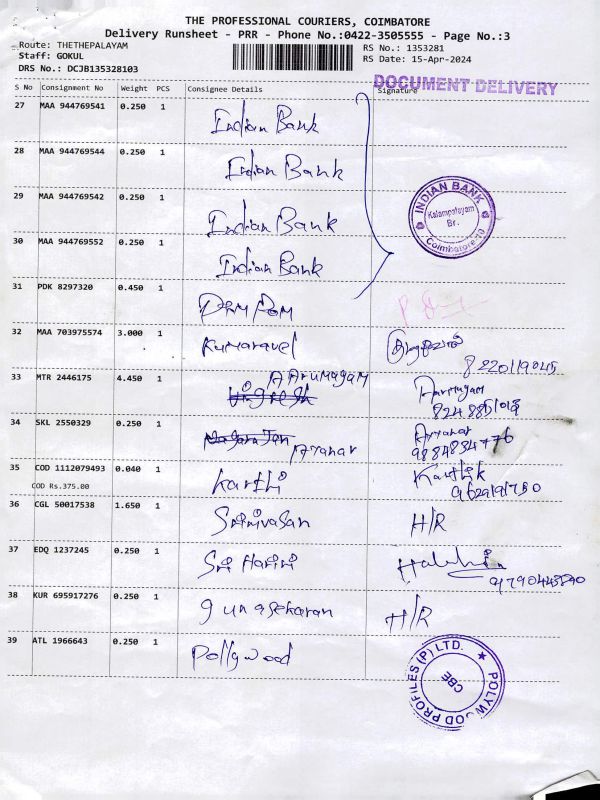 THE PROFESSIONAL COURIERS, COIMBATORE
Delivery Runsheet - PRR - Phone No.:0422-3505555 - Page No.:3
Route: THETHEPALAYAM
Staff: GOKUL
DRS No.: DCJB135328103
RS No.: 1353281
RS Date: 15-Apr-2024
DOCUMENT DELIVERY
S No Consignment No Weight PCS Consignee Details Signature
27 MAA 944769541 0.250 1 Indian Bank
28 MAA 944769544 0.250 1 Indian Bank
29 MAA 944769542 0.250 1 Indian Bank
30 MAA 944769552 0.250 1 Indian Bank
INDIAN BANK
Kalampalayam
Br.
Coimbatore-10
31 PDK 8297320 0.450 1
32 MAA 703975574 3.000 1 Kumaravel
33 MTR 2446175 4.450 1 A Arumagam
34 SKL 2550329 0.250 1 Ayyanar
9884834776
35 COD 1112079493 0.040 1 Karthi Karthik
COD Rs.375.00
36 CGL 50017538 1.650 1 Srinivasan H/R
37 EDQ 1237245 0.250 1 Sri Harini
38 KUR 695917276 0.250 1 gunasekaran H/R
39 ATL 1966643 0.250 1 Pollywood
POLYWOOD PROFILES (P) LTD.
CBE